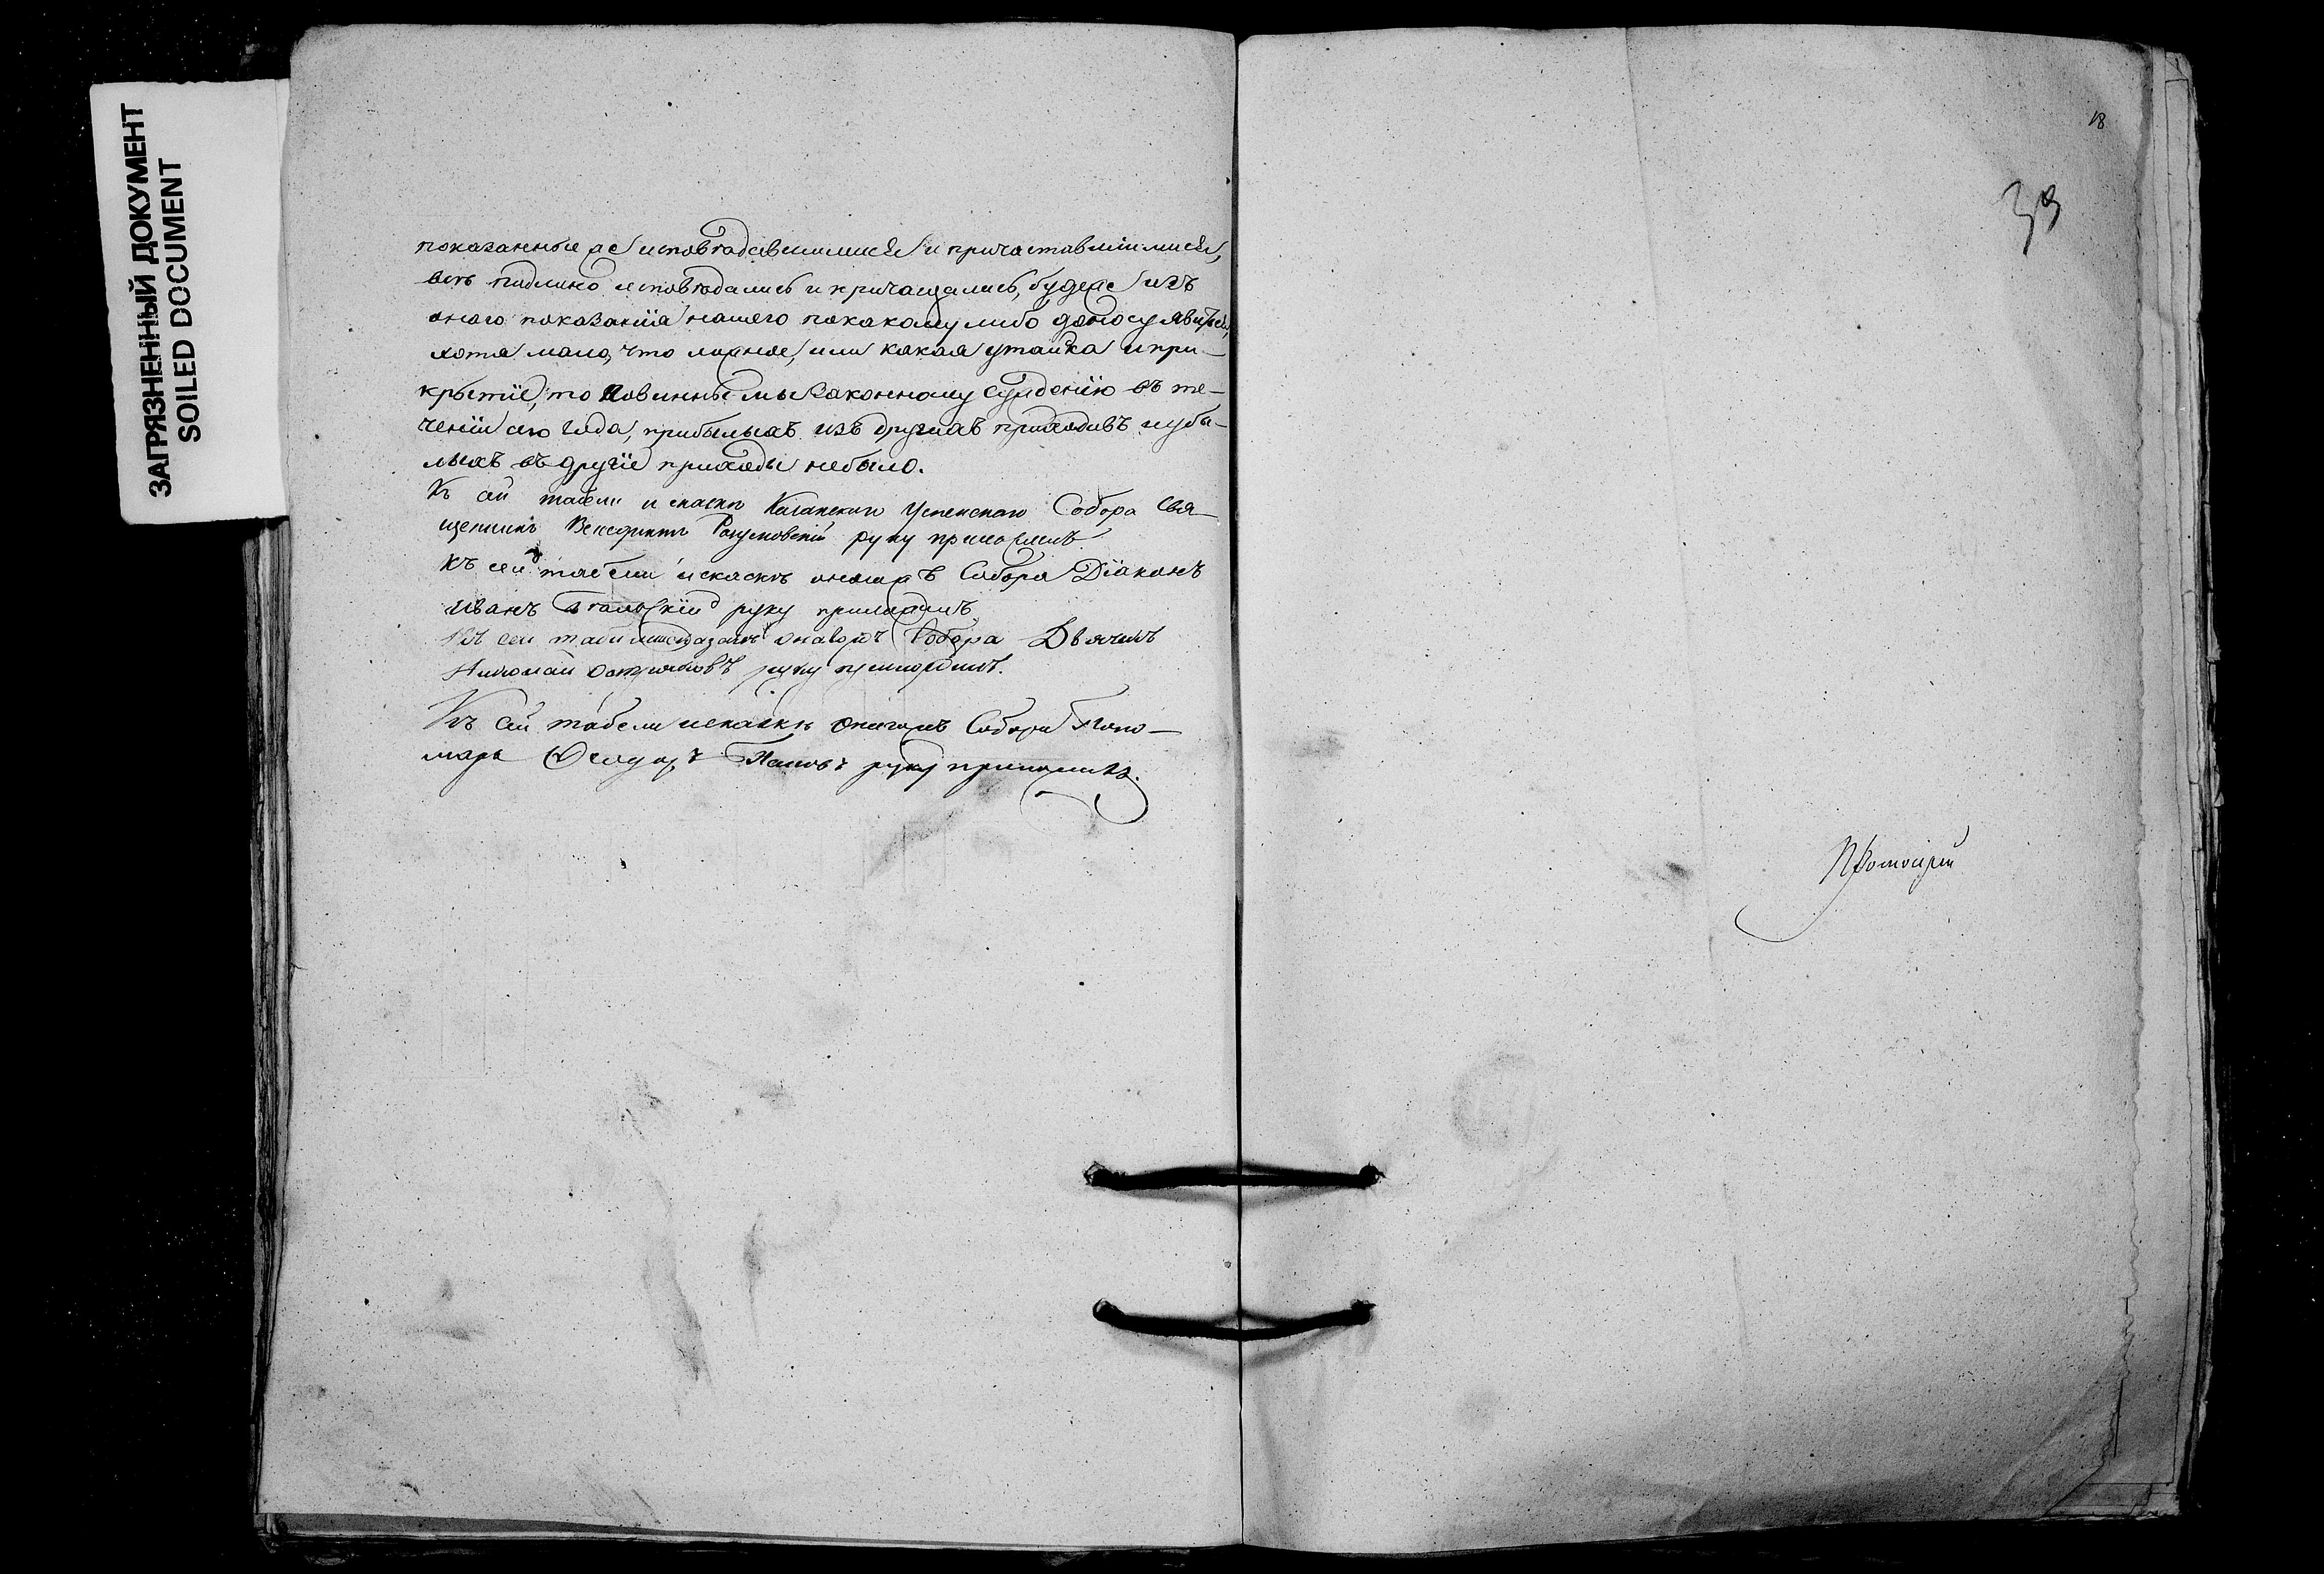 ЗАГРЯЗНЕННЫЙ ДОКУМЕНТ
SOILED DOCUMENT
показанные же исповѣдавшимися и причаставшимися,
всѣ подлино исповѣдались и причащались, буде же изъ
онаго показанїя нашего по какому либо доносу явится
хотя мало, что ложное, или какая утайка и при-
крытїе, то повинны мы законному сужденїю въ те-
ченїи сего года, прибылыхъ изъ другихъ приходовъ и убы-
лыхъ въ другїе приходы небыло.
Къ сей табели и скаскѣ Успенскаго Собора Свя-
щенникъ руку приложилъ
Къ сей табели и скаскѣ онагожъ Собора Дїаконъ
Иванъ руку приложилъ
Къ сей табели онагожъ Собора Дьячекъ
Николай руку приложилъ.
Къ сей табели и скаскѣ онагожъ Собора Поно-
марь Ѳеодоръ Поповъ руку приложилъ.
18
39
Протоиерей